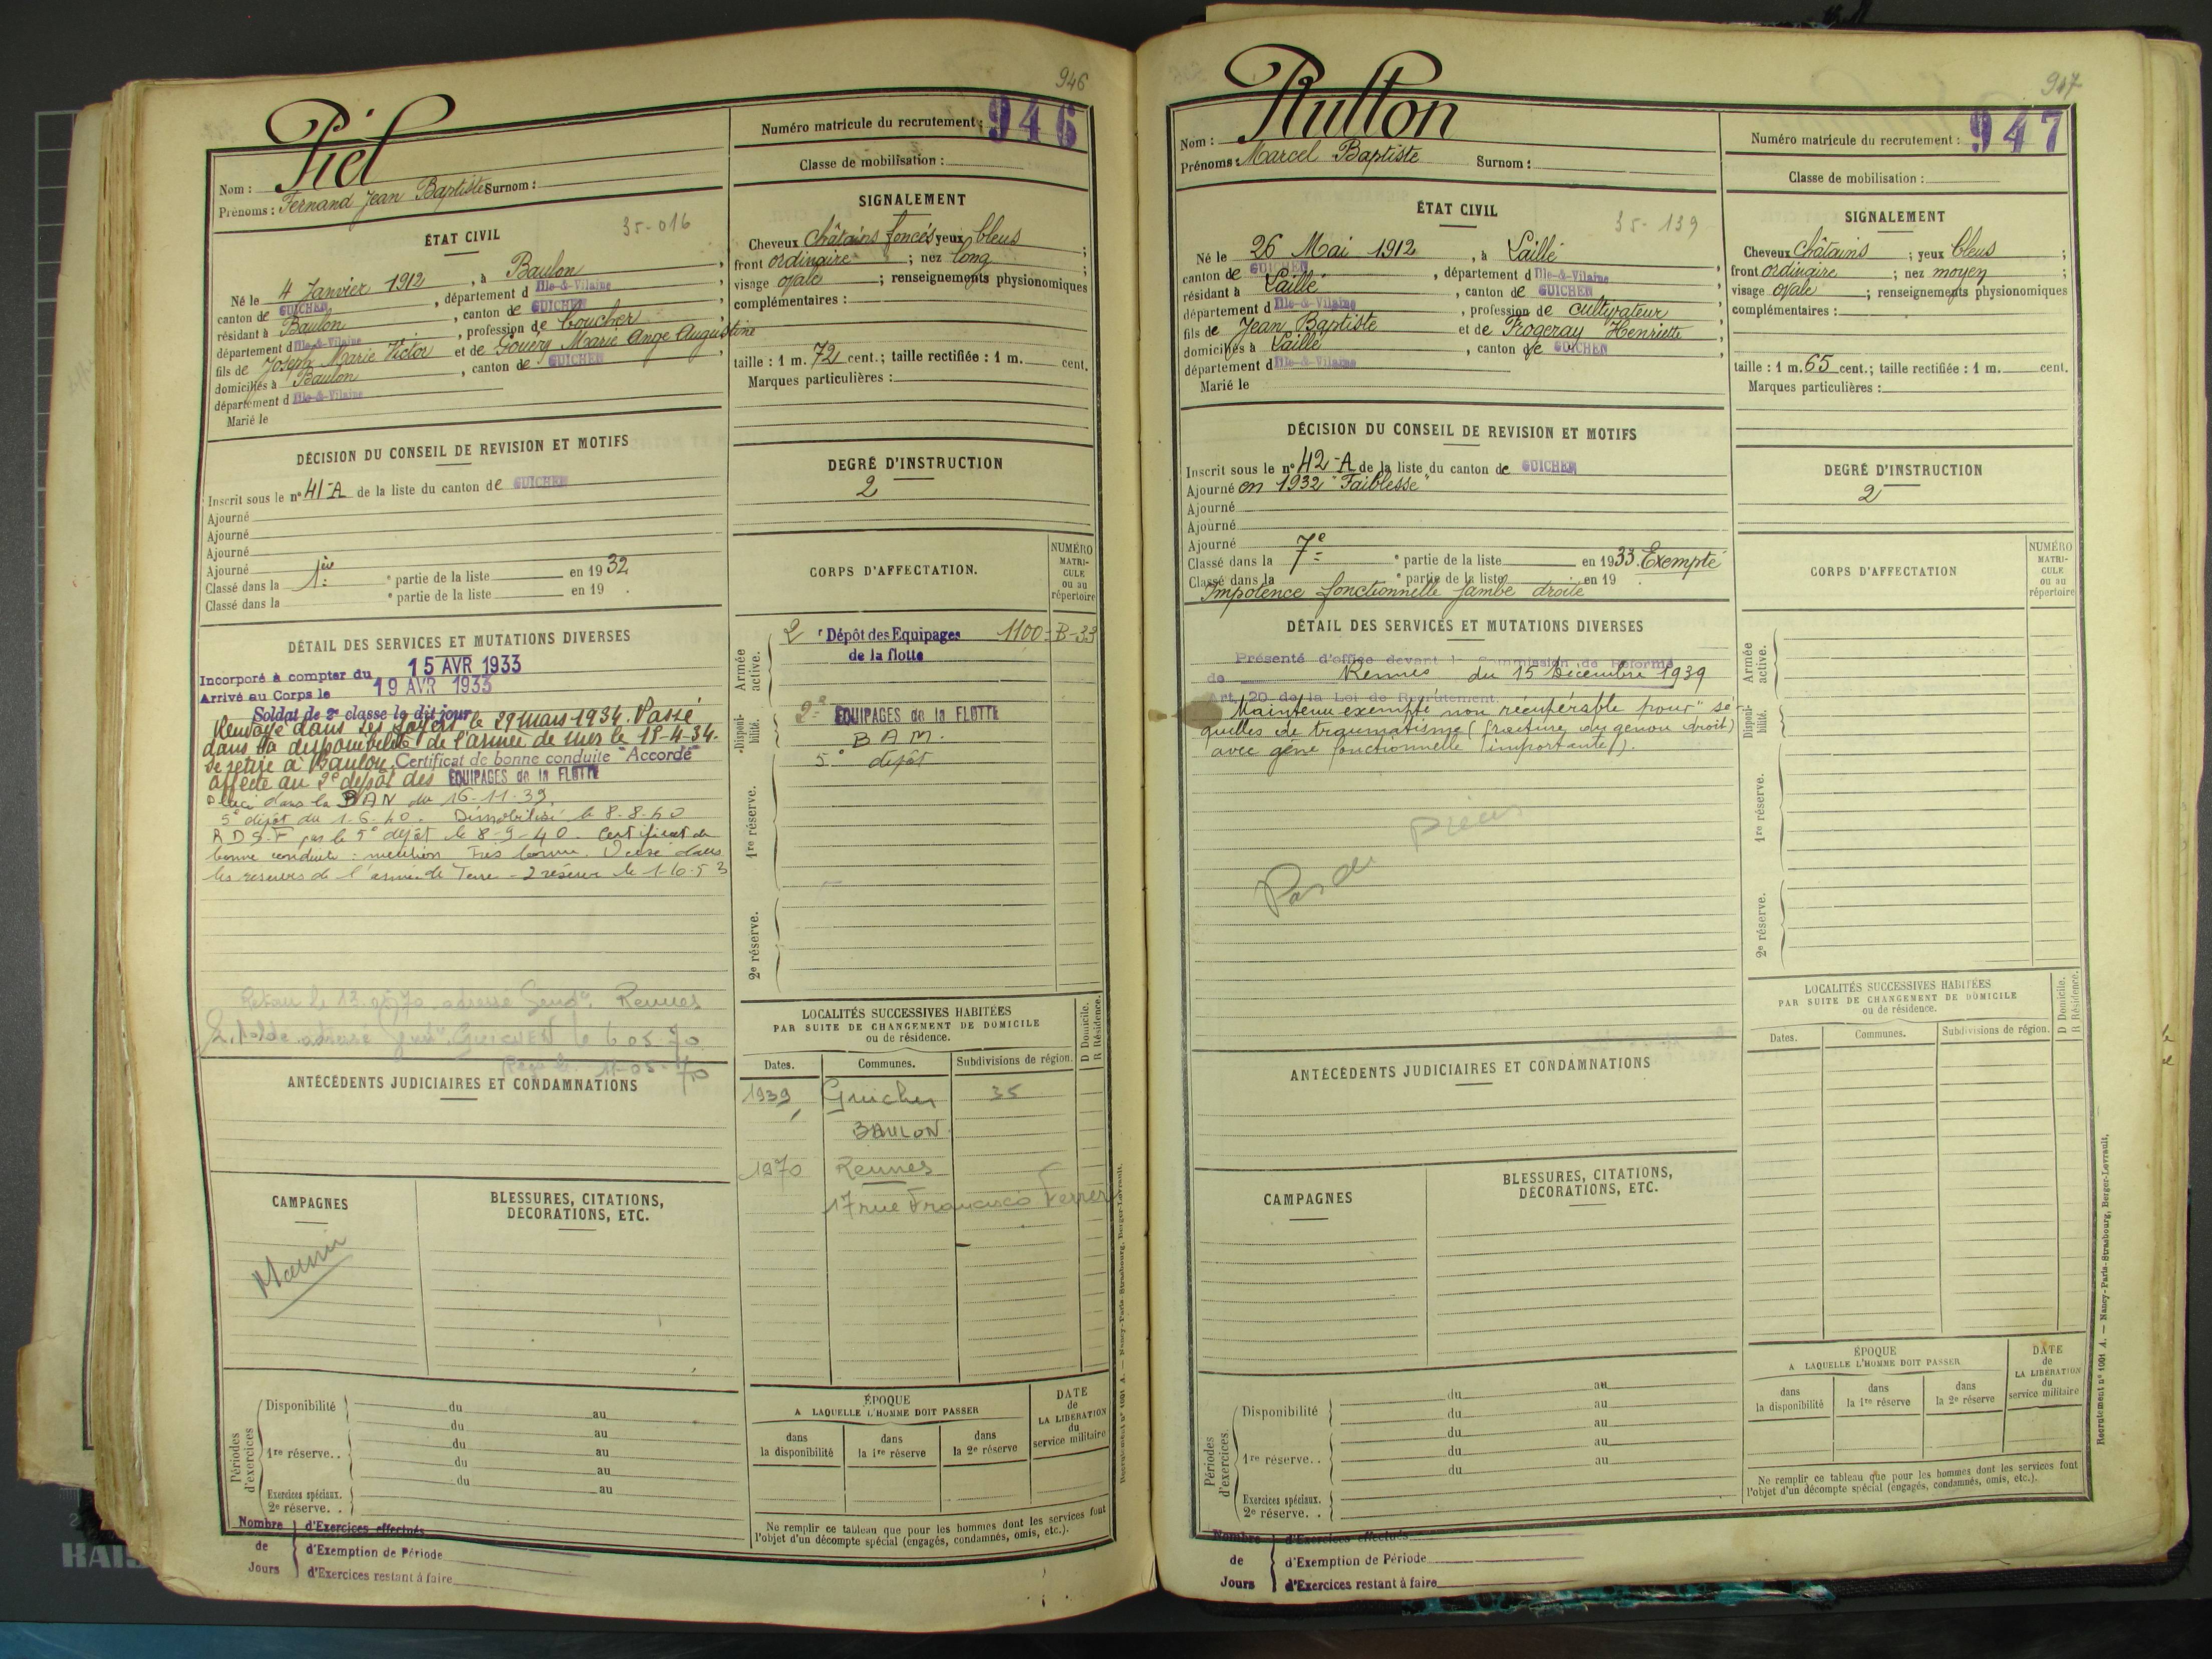 946
Piel
Nom :
Prénoms : Fernand Jean Baptiste Surnom :
Numéro matricule du recrutement : 946
Classe de mobilisation :
35-016
ÉTAT CIVIL
Né le 4 Janvier 1912, à Baulon,
canton de GUICHEN, département d Ille-&-Vilaine
résidant à Baulon, canton de GUICHEN,
département d Ille-&-Vilaine, profession de boucher
fils de Joseph Marie Victor et de Gouery Marie Ange Augustine
domiciliés à Baulon, canton de GUICHEN
département d Ille-&-Vilaine
Marié le
SIGNALEMENT
Cheveux châtains foncés yeux bleus ;
front ordinaire ; nez long ;
visage ovale ; renseignements physionomiques
complémentaires :
taille : 1 m. 72 cent.; taille rectifiée : 1 m. cent.
Marques particulières :
DÉCISION DU CONSEIL DE REVISION ET MOTIFS
Inscrit sous le n° 41-A de la liste du canton de GUICHEN
Ajourné
Ajourné
Ajourné
Ajourné
Classé dans la 1ère partie de la liste en 1932
Classé dans la e partie de la liste en 19 .
DEGRÉ D'INSTRUCTION
2
DÉTAIL DES SERVICES ET MUTATIONS DIVERSES
Incorporé à compter du 15 AVR 1933
Arrivé au Corps le 19 AVR 1933
Soldat de 2e classe le dit jour
Renvoyé dans ses foyers le 29 mars 1934. Passé
dans la disponibilité de l'armée de mer le 15-4-34.
Se retire à Baulon. Certificat de bonne conduite "Accordé"
Affecté au 2e dépôt des ÉQUIPAGES de la FLOTTE
Placé dans la BAN du 16-11-39.
5° dépôt du 1-6-40. Démobilisé le 8-8-40
R D S F par le 5° dépôt le 8-9-40. Certificat de
bonne conduite : mention Très bonne. Versé dans
les réserves de l'armée de Terre - 2 réserve le 1-10-53
Retour le 13. adressé Gend. Rennes
adressé Gend. GUICHEN le 6 05 70
Reçu le 11-05-70
CORPS D'AFFECTATION.
NUMÉRO MATRICULE ou au répertoire
Armée active.
2e Dépôt des Equipages 1100-B-33
de la flotte
Disponibilité.
2e EQUIPAGES de la FLOTTE
B A M.
5° dépôt
1re réserve.
2e réserve.
ANTÉCÉDENTS JUDICIAIRES ET CONDAMNATIONS
LOCALITÉS SUCCESSIVES HABITÉES
PAR SUITE DE CHANGEMENT DE DOMICILE
ou de résidence.
D Domicile.
R Résidence.
Dates. Communes. Subdivisions de région.
1939 Guichen 35
BAULON
1970 Rennes
17 rue Francisco Ferrer
CAMPAGNES
BLESSURES, CITATIONS,
DÉCORATIONS, ETC.
Marin
Périodes d'exercices
Disponibilité du au
du au
1re réserve. . du au
du au
du au
Exercices spéciaux.
2e réserve. .
Nombre de Jours
d'Exercices effectués
d'Exemption de Période
d'Exercices restant à faire
ÉPOQUE
A LAQUELLE L'HOMME DOIT PASSER
dans la disponibilité
dans la 1re réserve
dans la 2e réserve
DATE de LA LIBÉRATION du service militaire
Ne remplir ce tableau que pour les hommes dont les services font
l'objet d'un décompte spécial (engagés, condamnés, omis, etc.).
Recrutement n° 1001 A. — Nancy-Paris-Strasbourg, Berger-Levrault.
947
Rulton
Nom :
Prénoms : Marcel Baptiste Surnom :
Numéro matricule du recrutement : 947
Classe de mobilisation :
35-139
ÉTAT CIVIL
Né le 26 Mai 1912, à Laillé,
canton de GUICHEN, département d Ille-&-Vilaine
résidant à Laillé, canton de GUICHEN,
département d Ille-&-Vilaine, profession de cultivateur
fils de Jean Baptiste et de Rogeray Henriette,
domiciliés à Laillé, canton de GUICHEN,
département d Ille-&-Vilaine
Marié le
SIGNALEMENT
Cheveux châtains ; yeux bleus ;
front ordinaire ; nez moyen ;
visage ovale ; renseignements physionomiques
complémentaires :
taille : 1 m. 65 cent.; taille rectifiée : 1 m. cent.
Marques particulières :
DÉCISION DU CONSEIL DE REVISION ET MOTIFS
Inscrit sous le n° 42-A de la liste du canton de GUICHEN
Ajourné en 1932 "Faiblesse"
Ajourné
Ajourné
Ajourné
Classé dans la 7e partie de la liste en 1933 Exempté
Classé dans la e partie de la liste en 19 .
Impotence fonctionnelle jambe droite
DEGRÉ D'INSTRUCTION
2
DÉTAIL DES SERVICES ET MUTATIONS DIVERSES
Présenté d'office devant la Commission de Réforme
de Rennes du 15 Décembre 1939
Art. 20 de la Loi de Recrutement.
Maintenu exempté non récupérable pour "sé-
quelles de traumatisme (fracture du genou droit)
avec gêne fonctionnelle importante").
Pas de pièces
CORPS D'AFFECTATION
NUMÉRO MATRICULE ou au répertoire
Armée active.
Disponibilité.
1re réserve.
2e réserve.
ANTÉCÉDENTS JUDICIAIRES ET CONDAMNATIONS
LOCALITÉS SUCCESSIVES HABITÉES
PAR SUITE DE CHANGEMENT DE DOMICILE
ou de résidence.
D Domicile.
R Résidence.
Dates. Communes. Subdivisions de région.
CAMPAGNES
BLESSURES, CITATIONS,
DÉCORATIONS, ETC.
Périodes d'exercices.
Disponibilité du au
du au
1re réserve. . du au
du au
du au
Exercices spéciaux.
2e réserve. .
Nombre de Jours
d'Exercices effectués
d'Exemption de Période
d'Exercices restant à faire
ÉPOQUE
A LAQUELLE L'HOMME DOIT PASSER
dans la disponibilité
dans la 1re réserve
dans la 2e réserve
DATE de LA LIBÉRATION du service militaire
Ne remplir ce tableau que pour les hommes dont les services font
l'objet d'un décompte spécial (engagés, condamnés, omis, etc.).
Recrutement n° 1001 A. — Nancy-Paris-Strasbourg, Berger-Levrault.